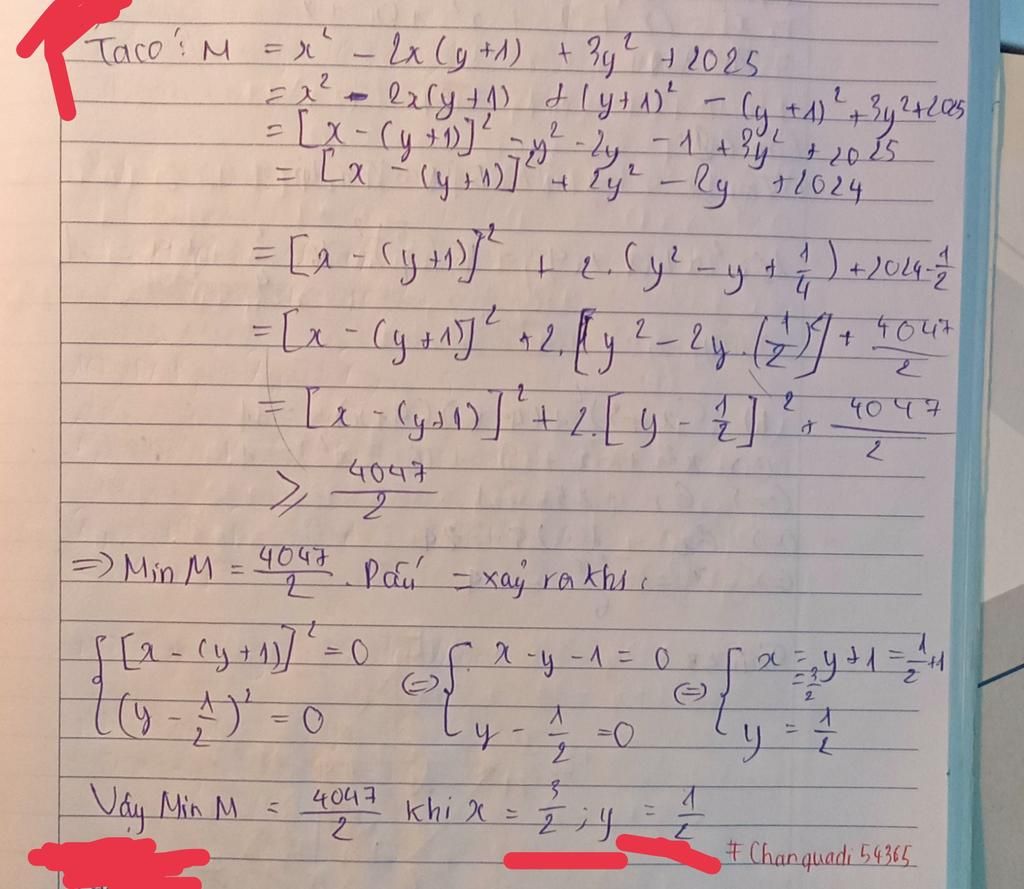 Ta có: M = x² - 2x(y+1) + 3y² + 2025
= x² - 2x(y+1) + (y+1)² - (y+1)² + 3y² + 2025
= [x - (y+1)]² - y² - 2y - 1 + 3y² + 2025
= [x - (y+1)]² + 2y² - 2y + 2024
= [x - (y+1)]² + 2.(y² - y + 1/4) + 2024 - 1/2
= [x - (y+1)]² + 2.[y² - 2y.(1/2)²] + 4047/2
= [x - (y+1)]² + 2.[y - 1/2]² + 4047/2
⩾ 4047/2
=> Min M = 4047/2. Dấu = xảy ra khi:
{ [x - (y+1)]² = 0 (=) { x - y - 1 = 0 (=) { x = y + 1 = 1/2 + 1 = 3/2
(y - 1/2)² = 0 y - 1/2 = 0 y = 1/2
Vậy Min M = 4047/2 khi x = 3/2 ; y = 1/2
# Chanquadi 54365